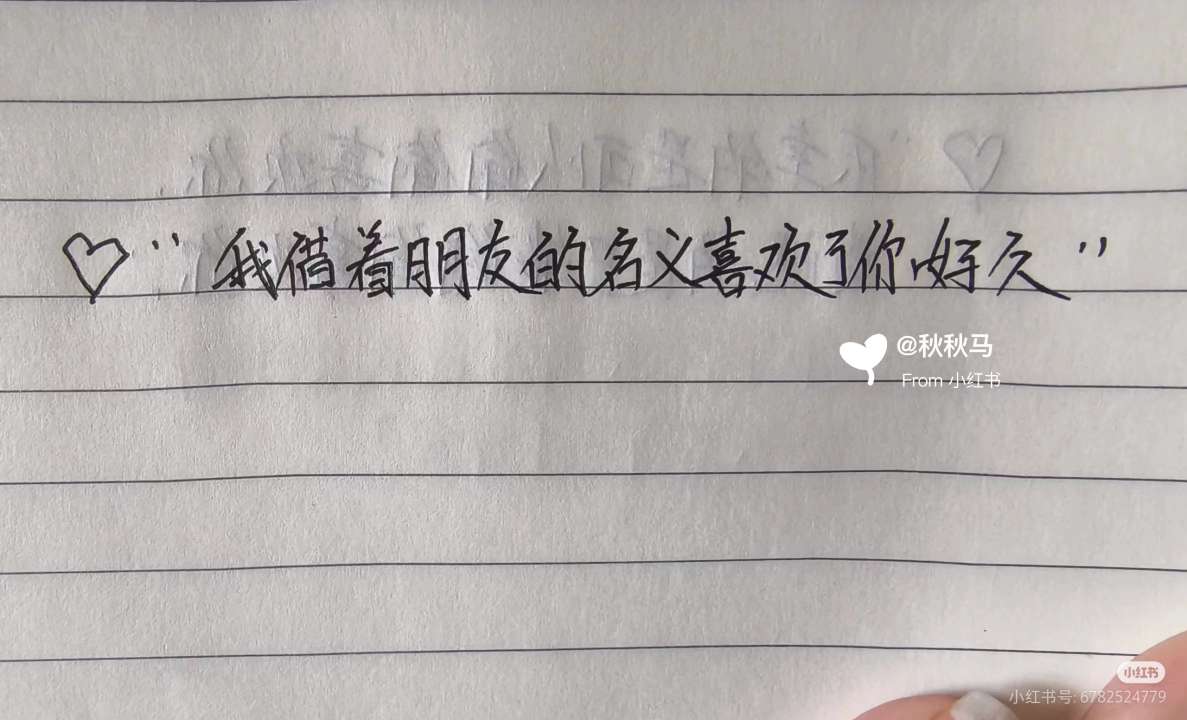 ♡“我借着朋友的名义喜欢了你好久”
@秋秋马
From 小红书
小红书
小红书号: 6782524779